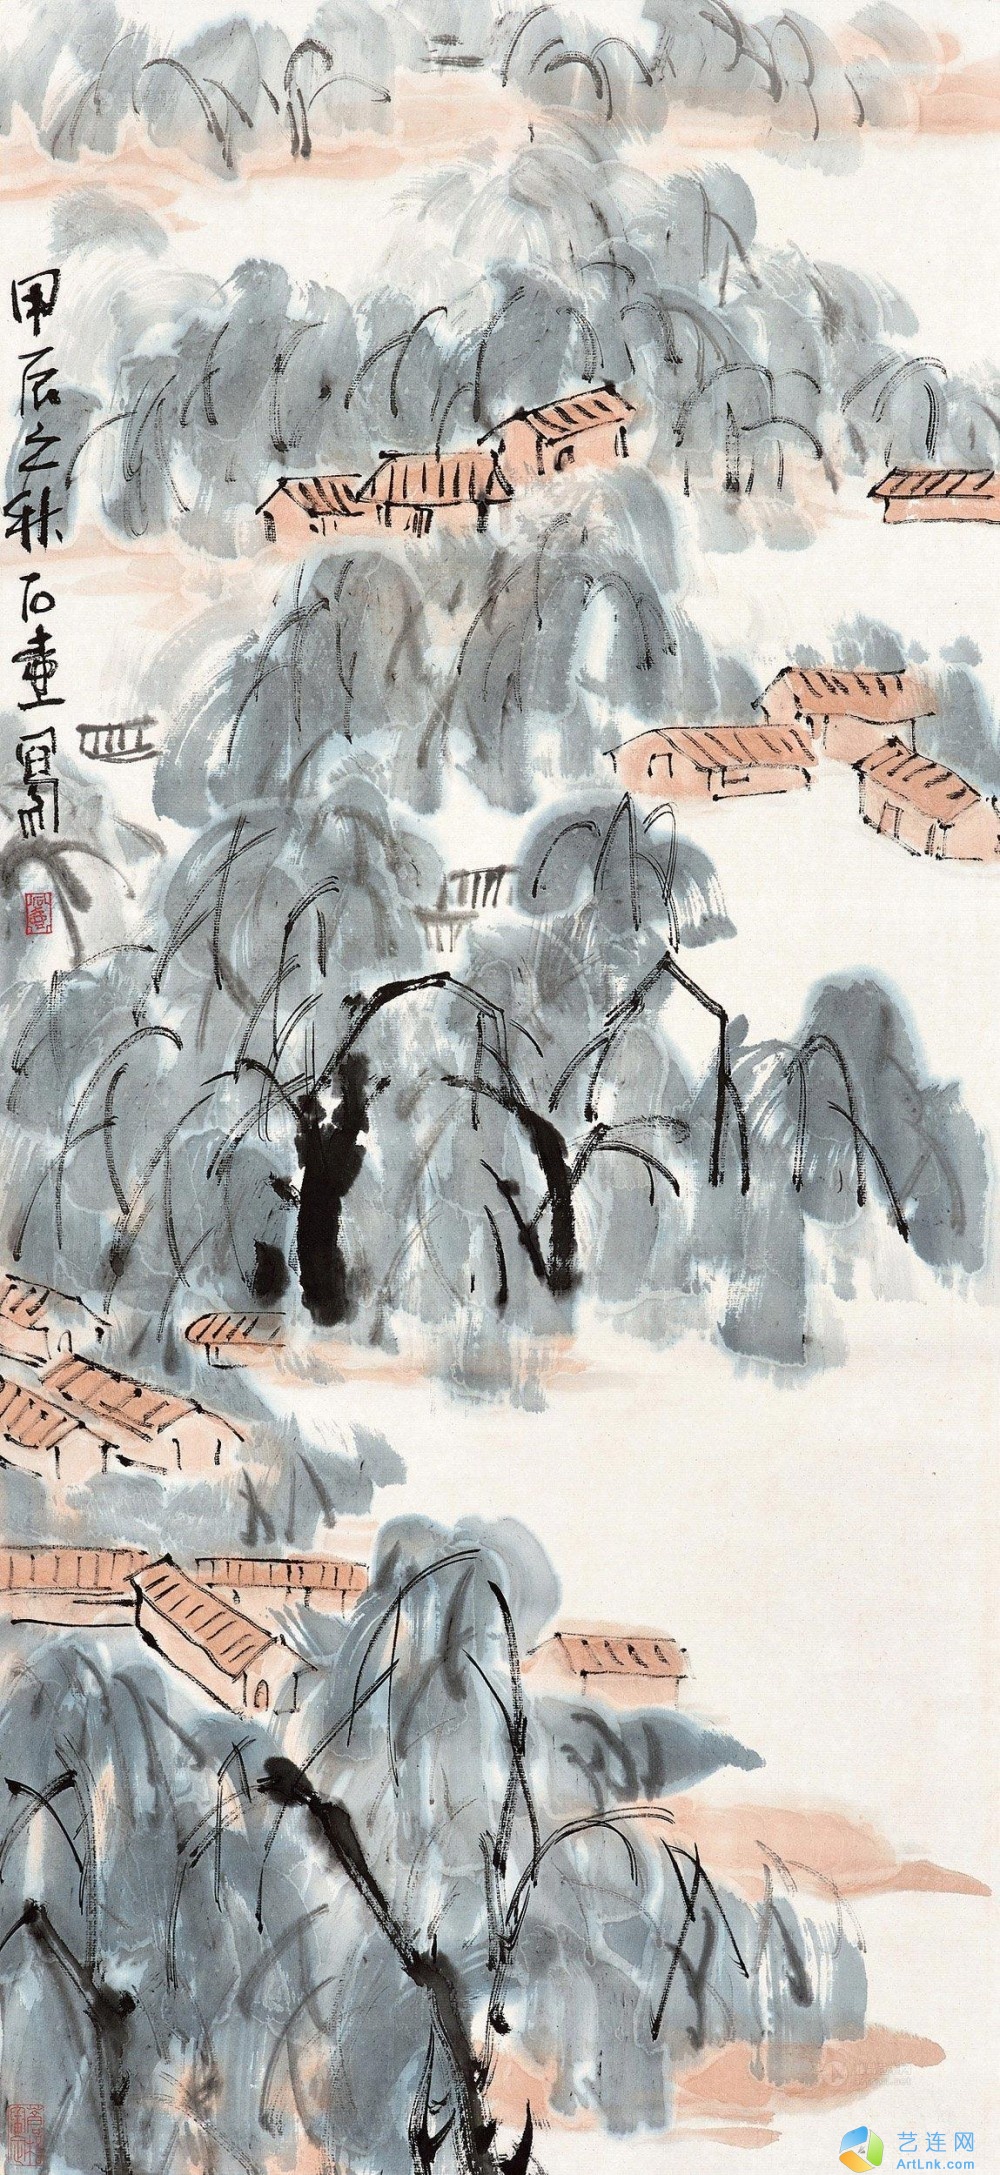 甲辰之秋石壶写
艺连网
ArtLnk.com